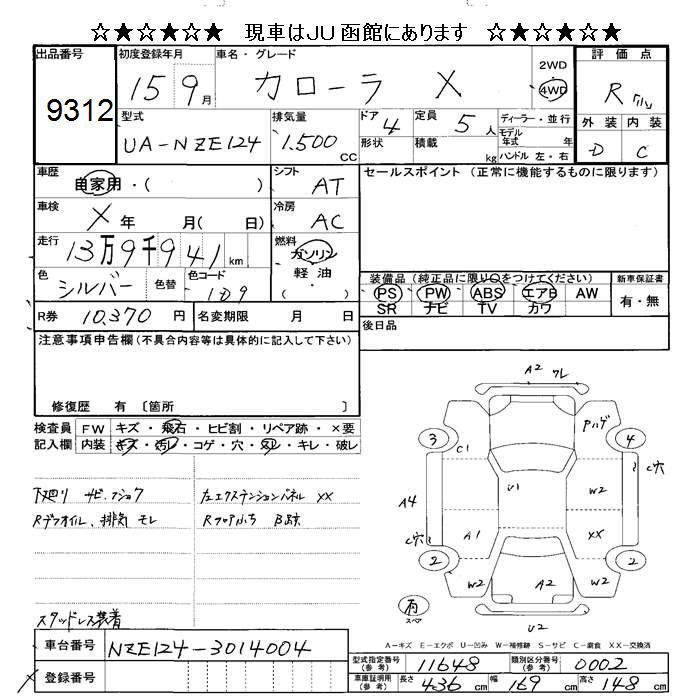 ☆★☆★☆★ 現車はJU函館にあります ☆★☆★☆★
出品番号 初度登録年月 車名・グレード 2WD 評価点
9312 15年9月 カローラ X 4WD R
型式 排気量 ドア 定員 ディーラー・並行 外装 内装
UA-NZE124 1.500 CC 4 5人 モデル年式 年 D C
形状 積載 kg ハンドル 左・右
車歴 自家用・( ) シフト AT セールスポイント (正常に機能するものに限ります)
車検 X年 月( 日) 冷房 AC
走行 13万9千941km 燃料 ガソリン
軽油
( ・ )
色 シルバー 色替 色コード 1D9 装備品(純正品に限り○をつけてください) 新車保証書
PS PW ABS エアB AW 有・無
SR ナビ TV カワ
R券 10,370円 名変期限 月 日 後日品
注意事項申告欄(不具合内容等は具体的に記入して下さい)
修復歴 有 〔箇所 〕
検査員 FW キズ・飛石・ヒビ割・リペア跡・×要
記入欄 内装 キズ・汚レ・コゲ・穴・スレ・キレ・破レ
下廻り サビ.フショク 左エクステンションパネル XX
Rデフオイル、排気 モレ Rフロアふち B跡
スタッドレス装着
A2 ワレ
Pハゲ
3 4
C1 C穴
U1 W2
A4
A1 XX
C穴
2 2
W2 A2 W2
雨
スペア
U2
A-キズ E-エクボ U-凹み W-補修跡 S-サビ C-腐食 XX-交換済
車台番号 NZE124-3014004
登録番号
型式指定番号(参考) 11648 類別区分番号(参考) 0002
車庫証明用(参考) 長さ 436cm 幅 169cm 高さ 148cm